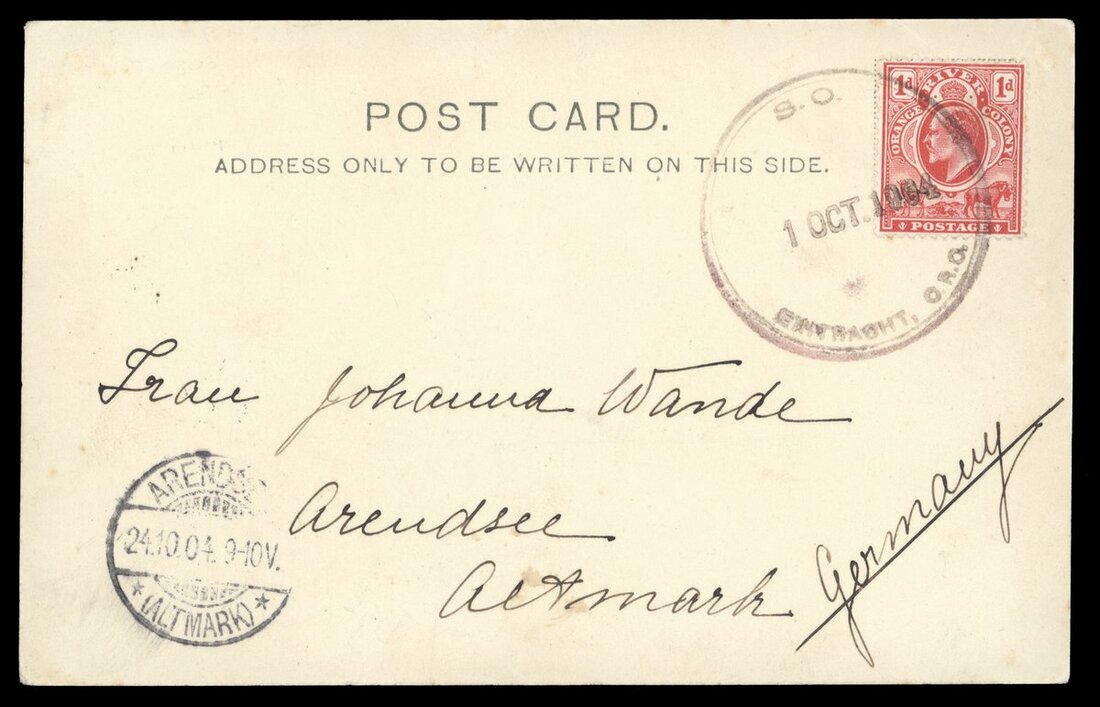 POST CARD.
ADDRESS ONLY TO BE WRITTEN ON THIS SIDE.
1d RIVER 1d
ORANGE COLONY
POSTAGE
S.O.
1 OCT. 1904
EINTRACHT, O.R.C.
Frau Johanna Wande
Arendsee
Altmark
Germany
ARENDS
24.10.04. 9-10V.
* (ALTMARK) *